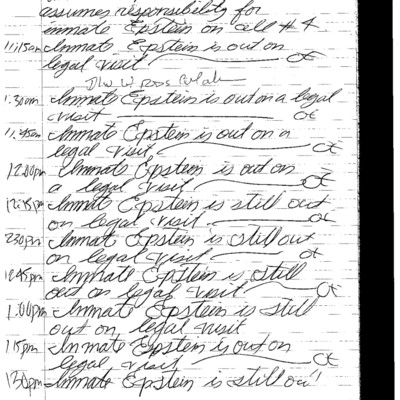 assumes responsibility for
inmate Epstein on cell # 4
11:15am Inmate Epstein is out on
legal visit. CE
1:30am Inmate Epstein is out on a legal
visit CE
11:45am Inmate Epstein is out on a
legal visit. CE
12:00pm Inmate Epstein is out on
a legal visit CE
12:15pm Inmate Epstein is still out
on legal visit. CE
230pm Inmate Epstein is still out
on legal visit CE
12:45pm Inmate Epstein is still
out on legal visit CE
1:00pm Inmate Epstein is still
out on legal visit
1:15pm Inmate Epstein is out on
legal visit CE
130pm Inmate Epstein is still out